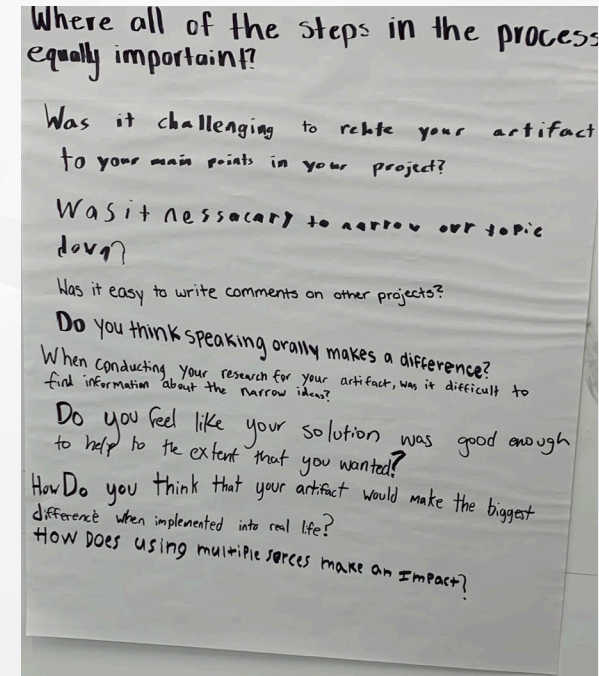 Where all of the steps in the process
equally importaint?
Was it challenging to relate your artifact
to your main points in your project?
Was it nessacary to narrow our topic
down?
Was it easy to write comments on other projects?
Do you think speaking orally makes a difference?
When conducting your research for your artifact, was it difficult to
find information about the narrow ideas?
Do you feel like your solution was good enough
to help to the extent that you wanted?
How Do you think that your artifact would make the biggest
difference when implemented into real life?
How Does using multiple sorces make an Impact?